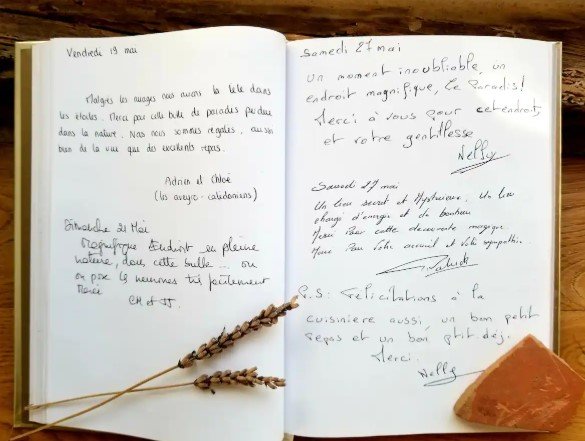 Vendredi 19 mai
Malgrés les nuages nous avions la tête dans
les étoiles. Merci pour cette bulle de paradis perdue
dans la nature. Nous nous sommes régalés, aussi
bien de la vue que des excellents repas.
Adrien et Chloé
(les aveyro-calédoniens)
Dimanche 21 Mai
Magnifique Endroit en pleine
nature, dans cette bulle... on
on pose les neurones très facilement
Merci
CH et JJ.
Samedi 27 mai
Un moment inoubliable, un
endroit magnifique, le Paradis!
Merci à vous pour cet endroit,
et votre gentillesse
Nelly
Samedi 27 mai
Un lieu secret et Mystérieux, Un lieu
chargé d'énergie et de bonheur
Merci Pour cette découverte magique
Merci Pour Votre accueil et Votre sympathie.
P.S: Félicitations à la
cuisinière aussi, un bon petit
repas et un bon ptit-déj.
Merci.
Nelly